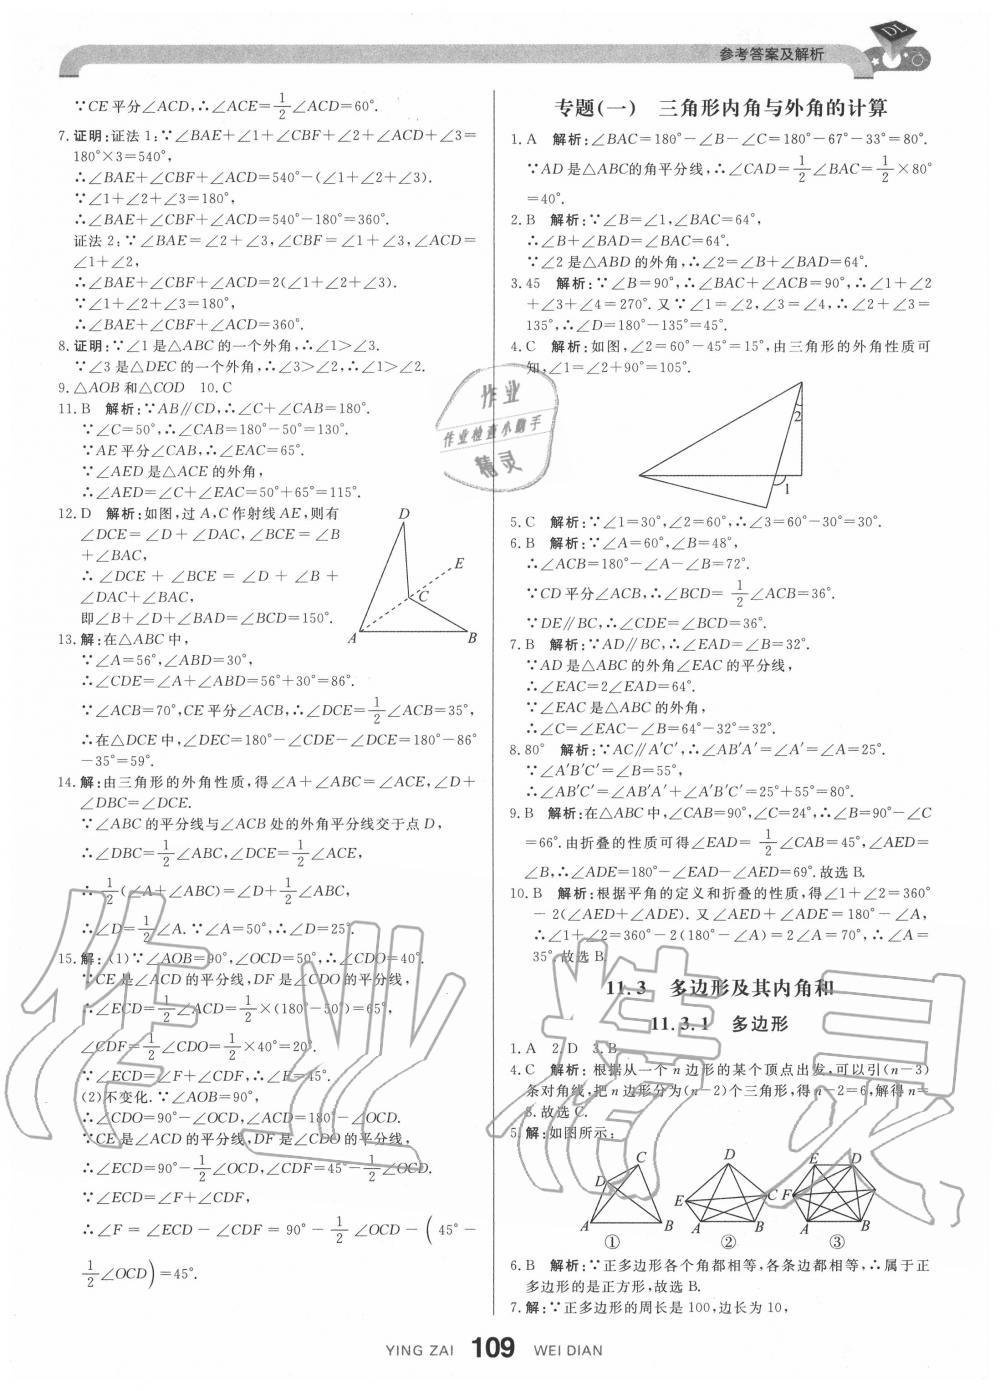 参考答案及解析
DL
∵CE平分∠ACD,∴∠ACE=1/2∠ACD=60°.
7.证明:证法1:∵∠BAE+∠1+∠CBF+∠2+∠ACD+∠3=
180°×3=540°,
∴∠BAE+∠CBF+∠ACD=540°-(∠1+∠2+∠3).
∵∠1+∠2+∠3=180°,
∴∠BAE+∠CBF+∠ACD=540°-180°=360°.
证法2:∵∠BAE=∠2+∠3,∠CBF=∠1+∠3,∠ACD=
∠1+∠2,
∴∠BAE+∠CBF+∠ACD=2(∠1+∠2+∠3).
∵∠1+∠2+∠3=180°,
∴∠BAE+∠CBF+∠ACD=360°.
8.证明:∵∠1是△ABC的一个外角,∴∠1>∠3.
∵∠3是△DEC的一个外角,∴∠3>∠2,∴∠1>∠2.
9.△AOB和△COD 10.C
11.B 解析:∵AB∥CD,∴∠C+∠CAB=180°.
∵∠C=50°,∴∠CAB=180°-50°=130°.
∵AE平分∠CAB,∴∠EAC=65°.
∵∠AED是△ACE的外角,
∴∠AED=∠C+∠EAC=50°+65°=115°.
12.D 解析:如图,过A,C作射线AE,则有
∠DCE=∠D+∠DAC,∠BCE=∠B
+∠BAC,
∴∠DCE+∠BCE=∠D+∠B+
∠DAC+∠BAC,
即∠B+∠D+∠BAD=∠BCD=150°.
D
E
C
A
B
13.解:在△ABC中,
∵∠A=56°,∠ABD=30°,
∴∠CDE=∠A+∠ABD=56°+30°=86°.
∵∠ACB=70°,CE平分∠ACB,∴∠DCE=1/2∠ACB=35°,
∴在△DCE中,∠DEC=180°-∠CDE-∠DCE=180°-86°
-35°=59°.
14.解:由三角形的外角性质,得∠A+∠ABC=∠ACE,∠D+
∠DBC=∠DCE.
∵∠ABC的平分线与∠ACB处的外角平分线交于点D,
∴∠DBC=1/2∠ABC,∠DCE=1/2∠ACE,
∴1/2(∠A+∠ABC)=∠D+1/2∠ABC,
∴∠D=1/2∠A.∵∠A=50°,∴∠D=25°.
15.解:(1)∵∠AOB=90°,∠OCD=50°,∴∠CDO=40°.
∵CE是∠ACD的平分线,DF是∠CDO的平分线,
∴∠ECD=1/2∠ACD=1/2×(180°-50°)=65°,
∠CDF=1/2∠CDO=1/2×40°=20°.
∵∠ECD=∠F+∠CDF,∴∠F=45°.
(2)不变化.∵∠AOB=90°,
∴∠CDO=90°-∠OCD,∠ACD=180°-∠OCD.
∵CE是∠ACD的平分线,DF是∠CDO的平分线,
∴∠ECD=90°-1/2∠OCD,∠CDF=45°-1/2∠OCD.
∵∠ECD=∠F+∠CDF,
∴∠F=∠ECD-∠CDF=90°-1/2∠OCD-(45°-
1/2∠OCD)=45°.
专题(一) 三角形内角与外角的计算
1.A 解析:∠BAC=180°-∠B-∠C=180°-67°-33°=80°.
∵AD是△ABC的角平分线,∴∠CAD=1/2∠BAC=1/2×80°
=40°.
2.B 解析:∵∠B=∠1,∠BAC=64°,
∴∠B+∠BAD=∠BAC=64°.
∵∠2是△ABD的外角,∴∠2=∠B+∠BAD=64°.
3.45 解析:∵∠B=90°,∴∠BAC+∠ACB=90°,∴∠1+∠2
+∠3+∠4=270°.又∵∠1=∠2,∠3=∠4,∴∠2+∠3=
135°,∴∠D=180°-135°=45°.
4.C 解析:如图,∠2=60°-45°=15°,由三角形的外角性质可
知,∠1=∠2+90°=105°.
2
1
5.C 解析:∵∠1=30°,∠2=60°,∴∠3=60°-30°=30°.
6.B 解析:∵∠A=60°,∠B=48°,
∴∠ACB=180°-∠A-∠B=72°.
∵CD平分∠ACB,∴∠BCD=1/2∠ACB=36°.
∵DE∥BC,∴∠CDE=∠BCD=36°.
7.B 解析:∵AD∥BC,∴∠EAD=∠B=32°.
∵AD是△ABC的外角∠EAC的平分线,
∴∠EAC=2∠EAD=64°.
∵∠EAC是△ABC的外角,
∴∠C=∠EAC-∠B=64°-32°=32°.
8.80° 解析:∵AC∥A′C′,∴∠AB′A′=∠A′=∠A=25°.
∵∠A′B′C′=∠B=55°,
∴∠AB′C′=∠AB′A′+∠A′B′C′=25°+55°=80°.
9.B 解析:在△ABC中,∠CAB=90°,∠C=24°,∴∠B=90°-∠C
=66°.由折叠的性质可得∠EAD=1/2∠CAB=45°,∠AED=
∠B,∴∠ADE=180°-∠EAD-∠AED=69°.故选B.
10.B 解析:根据平角的定义和折叠的性质,得∠1+∠2=360°
-2(∠AED+∠ADE).又∠AED+∠ADE=180°-∠A,
∴∠1+∠2=360°-2(180°-∠A)=2∠A=70°,∴∠A=
35°.故选B.
11.3 多边形及其内角和
11.3.1 多边形
1.A 2.D 3.B
4.C 解析:根据从一个n边形的某个顶点出发,可以引(n-3)
条对角线,把n边形分为(n-2)个三角形,得n-2=6,解得n=
8.故选C.
5.解:如图所示:
C
D
A B
①
D
E C
A B
②
E D
F
A B
③
6.B 解析:∵正多边形各个角都相等,各条边都相等,∴属于正
多边形的是正方形,故选B.
7.解:∵正多边形的周长是100,边长为10,
作业
作业检查小助手
精灵
作业精灵
YING ZAI 109 WEI DIAN